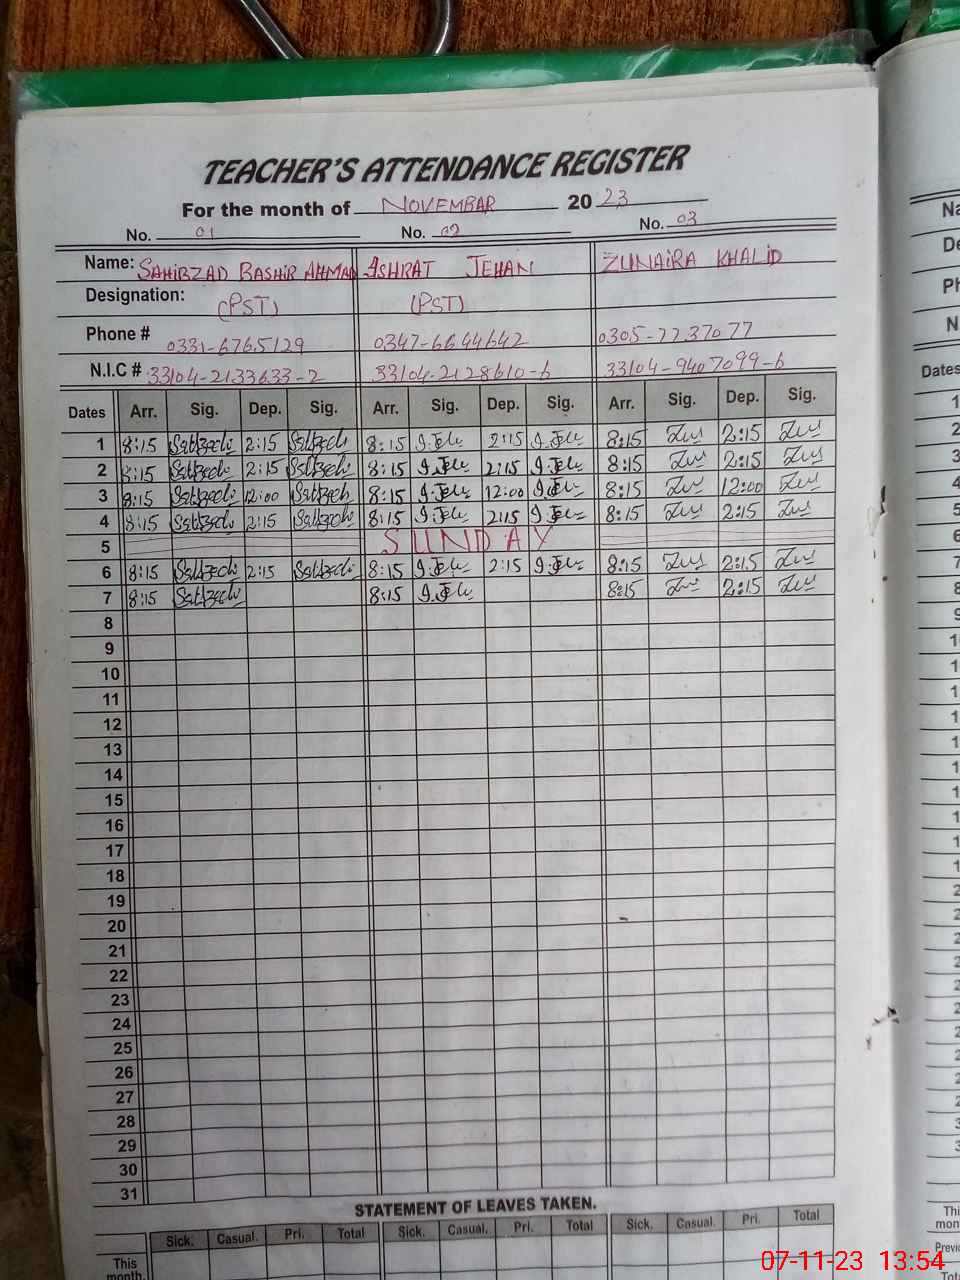 TEACHER'S ATTENDANCE REGISTER
For the month of NOVEMBAR 20 23
No. 01 No. 02 No. 03
Name: SAHIBZAD BASHIR AHMAD ISHRAT JEHAN ZUNAIRA KHALID
Designation: (PST) (PST)
Phone # 0331-6765129 0347-6644642 0305-7737077
N.I.C # 33104-2133633-2 33104-2128610-6 33104-9407099-6
Dates Arr. Sig. Dep. Sig. Arr. Sig. Dep. Sig. Arr. Sig. Dep. Sig.
1 8:15 2:15 8:15 I.Jeh 2:15 I.Jeh 8:15 Zun 2:15 Zun
2 8:15 2:15 8:15 I.Jeh 2:15 I.Jeh 8:15 Zun 2:15 Zun
3 8:15 12:00 8:15 I.Jeh 12:00 I.Jeh 8:15 Zun 12:00 Zun
4 8:15 2:15 8:15 I.Jeh 2:15 I.Jeh 8:15 Zun 2:15 Zun
5 SUNDAY
6 8:15 2:15 8:15 I.Jeh 2:15 I.Jeh 8:15 Zun 2:15 Zun
7 8:15 8:15 I.Jeh 8:15 Zun 2:15 Zun
8
9
10
11
12
13
14
15
16
17
18
19
20
21
22
23
24
25
26
27
28
29
30
31
STATEMENT OF LEAVES TAKEN.
Sick. Casual. Pri. Total Sick. Casual. Pri. Total Sick. Casual. Pri. Total
This
month.
Dates
07-11-23 13:54